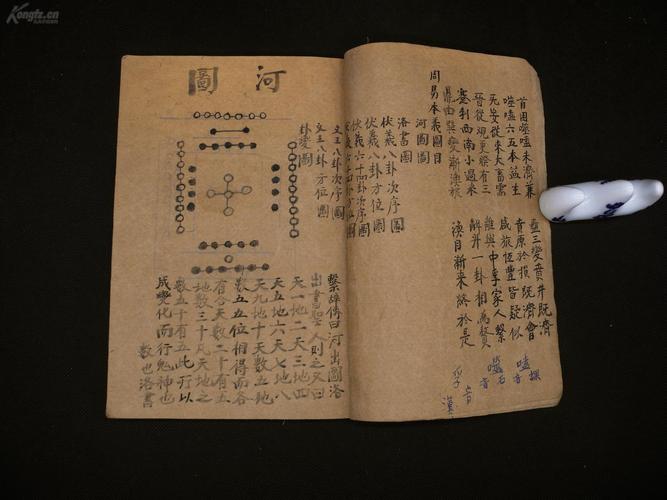 Kongfz.cn
首困噬嗑未濟兼
噬嗑六五本益生
无妄從來大畜需
晉從觀更睽有三
蹇利西南小過來
鼎由巽變漸渙旅
蠱三變賁井既濟
賁原於損既濟會
咸旅恆豐皆疑似
離與中孚家人繫
解升一卦相為贅
渙自漸來終於是
周易本義圖目
河圖圖
洛書圖
伏羲八卦次序圖
伏羲八卦方位圖
伏羲六十四卦次序圖
文王八卦次序圖
文王八卦方位圖
卦變圖
河圖
繫辭傳曰河出圖洛
出書聖人則之又曰
天一地二天三地四
天五地六天七地八
天九地十天數五地
數五五位相得而各
有合天數二十有五
地數三十凡天地之
數五十有五此所以
成變化而行鬼神也
數也洛書